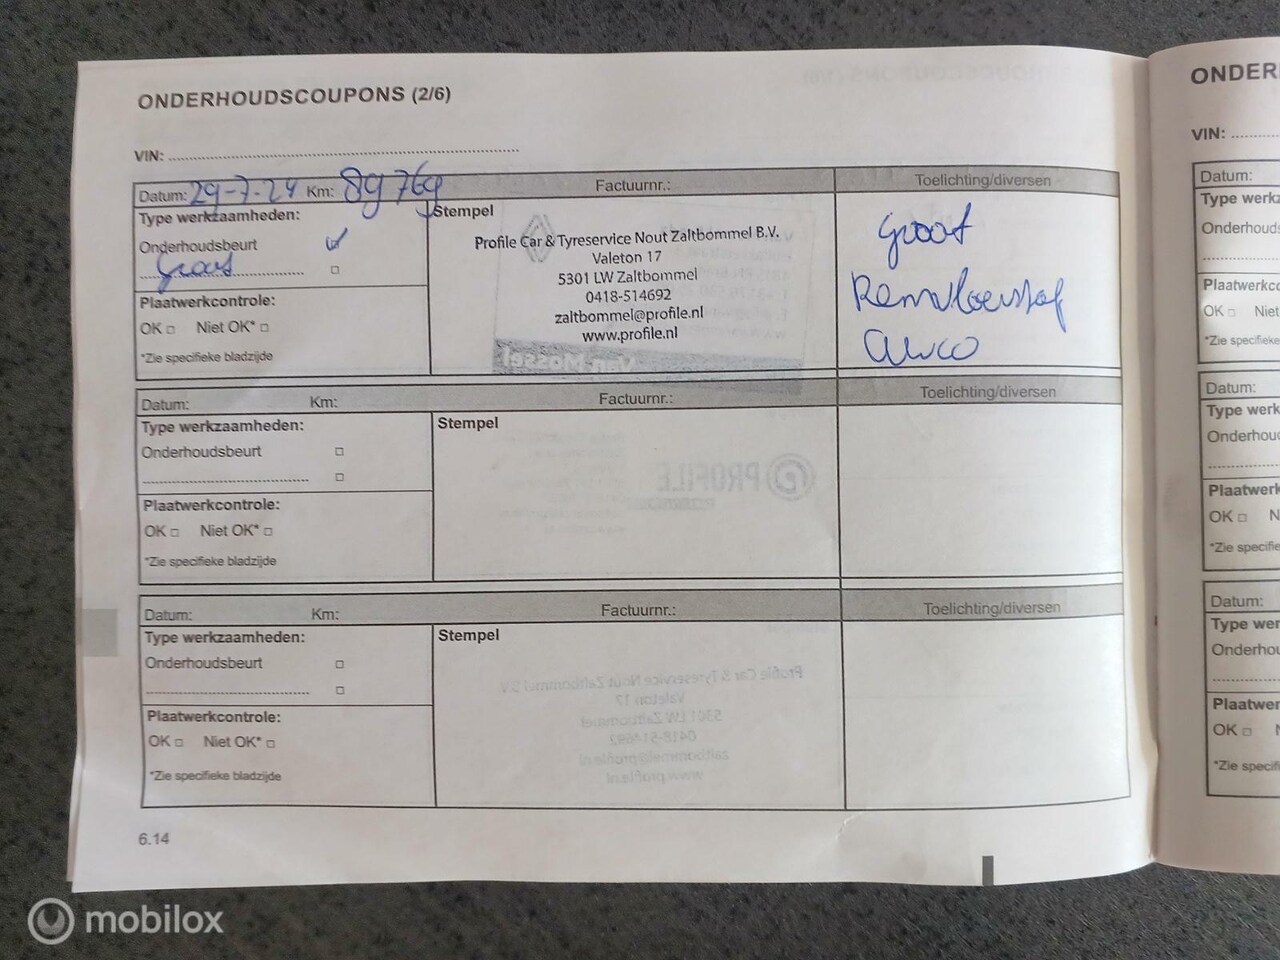 ONDERHOUDSCOUPONS (2/6)
VIN:
Datum: 29-7-24 Km: 89769 Factuurnr.: Toelichting/diversen
Type werkzaamheden:
Onderhoudsbeurt
Groot
Plaatwerkcontrole:
OK Niet OK*
*Zie specifieke bladzijde
Stempel
Profile Car & Tyreservice Nout Zaltbommel B.V.
Valeton 17
5301 LW Zaltbommel
0418-514692
zaltbommel@profile.nl
www.profile.nl
Groot
Remvloeistof
airco
Datum: Km: Factuurnr.: Toelichting/diversen
Type werkzaamheden:
Onderhoudsbeurt
Plaatwerkcontrole:
OK Niet OK*
*Zie specifieke bladzijde
Stempel
PROFILE
Datum: Km: Factuurnr.: Toelichting/diversen
Type werkzaamheden:
Onderhoudsbeurt
Plaatwerkcontrole:
OK Niet OK*
*Zie specifieke bladzijde
Stempel
Profile Car & Tyreservice Nout Zaltbommel B.V.
Valeton 17
5301 LW Zaltbommel
0418-514692
zaltbommel@profile.nl
www.profile.nl
6.14
ONDER
VIN:
Datum:
Type werkz
Onderhouds
Plaatwerkc
OK Niet
*Zie specifieke
Datum:
Type werk
Onderhoud
Plaatwerk
OK N
*Zie specifie
Datum:
Type wer
Onderhou
Plaatwer
OK N
*Zie specifi
mobilox